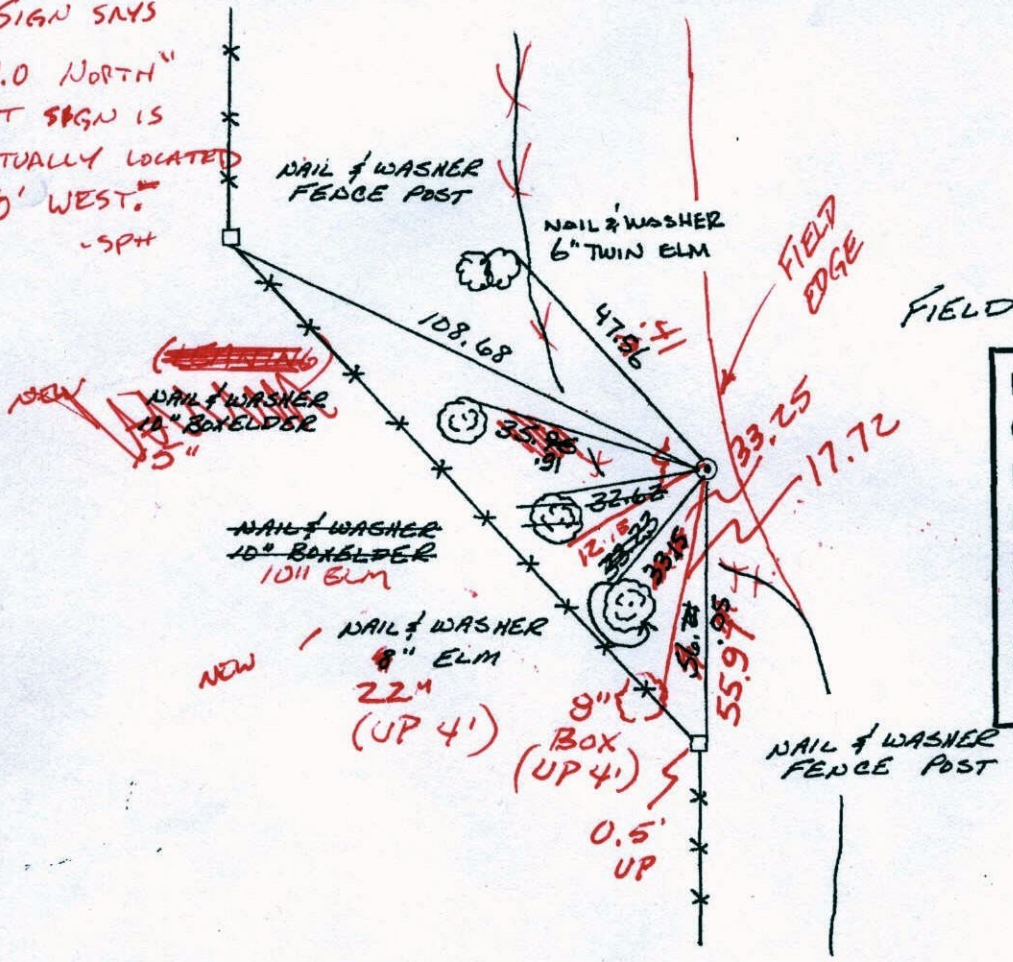 SIGN SAYS
.0 NORTH"
T SIGN IS
TUALLY LOCATED
' WEST."
-SPH
NAIL & WASHER
FENCE POST
NAIL & WASHER
6" TWIN ELM
FIELD
EDGE
FIELD
108.68
47.56
.41
NEW
NAIL & WASHER
10" BOXELDER
15"
.91
33.25
17.72
32.62
12.15
33.23
33.15
NAIL & WASHER
10" BOXELDER
10" ELM
NEW
NAIL & WASHER
8" ELM
22"
(UP 4')
8"
BOX
(UP 4')
.95
55.97
NAIL & WASHER
FENCE POST
0.5'
UP